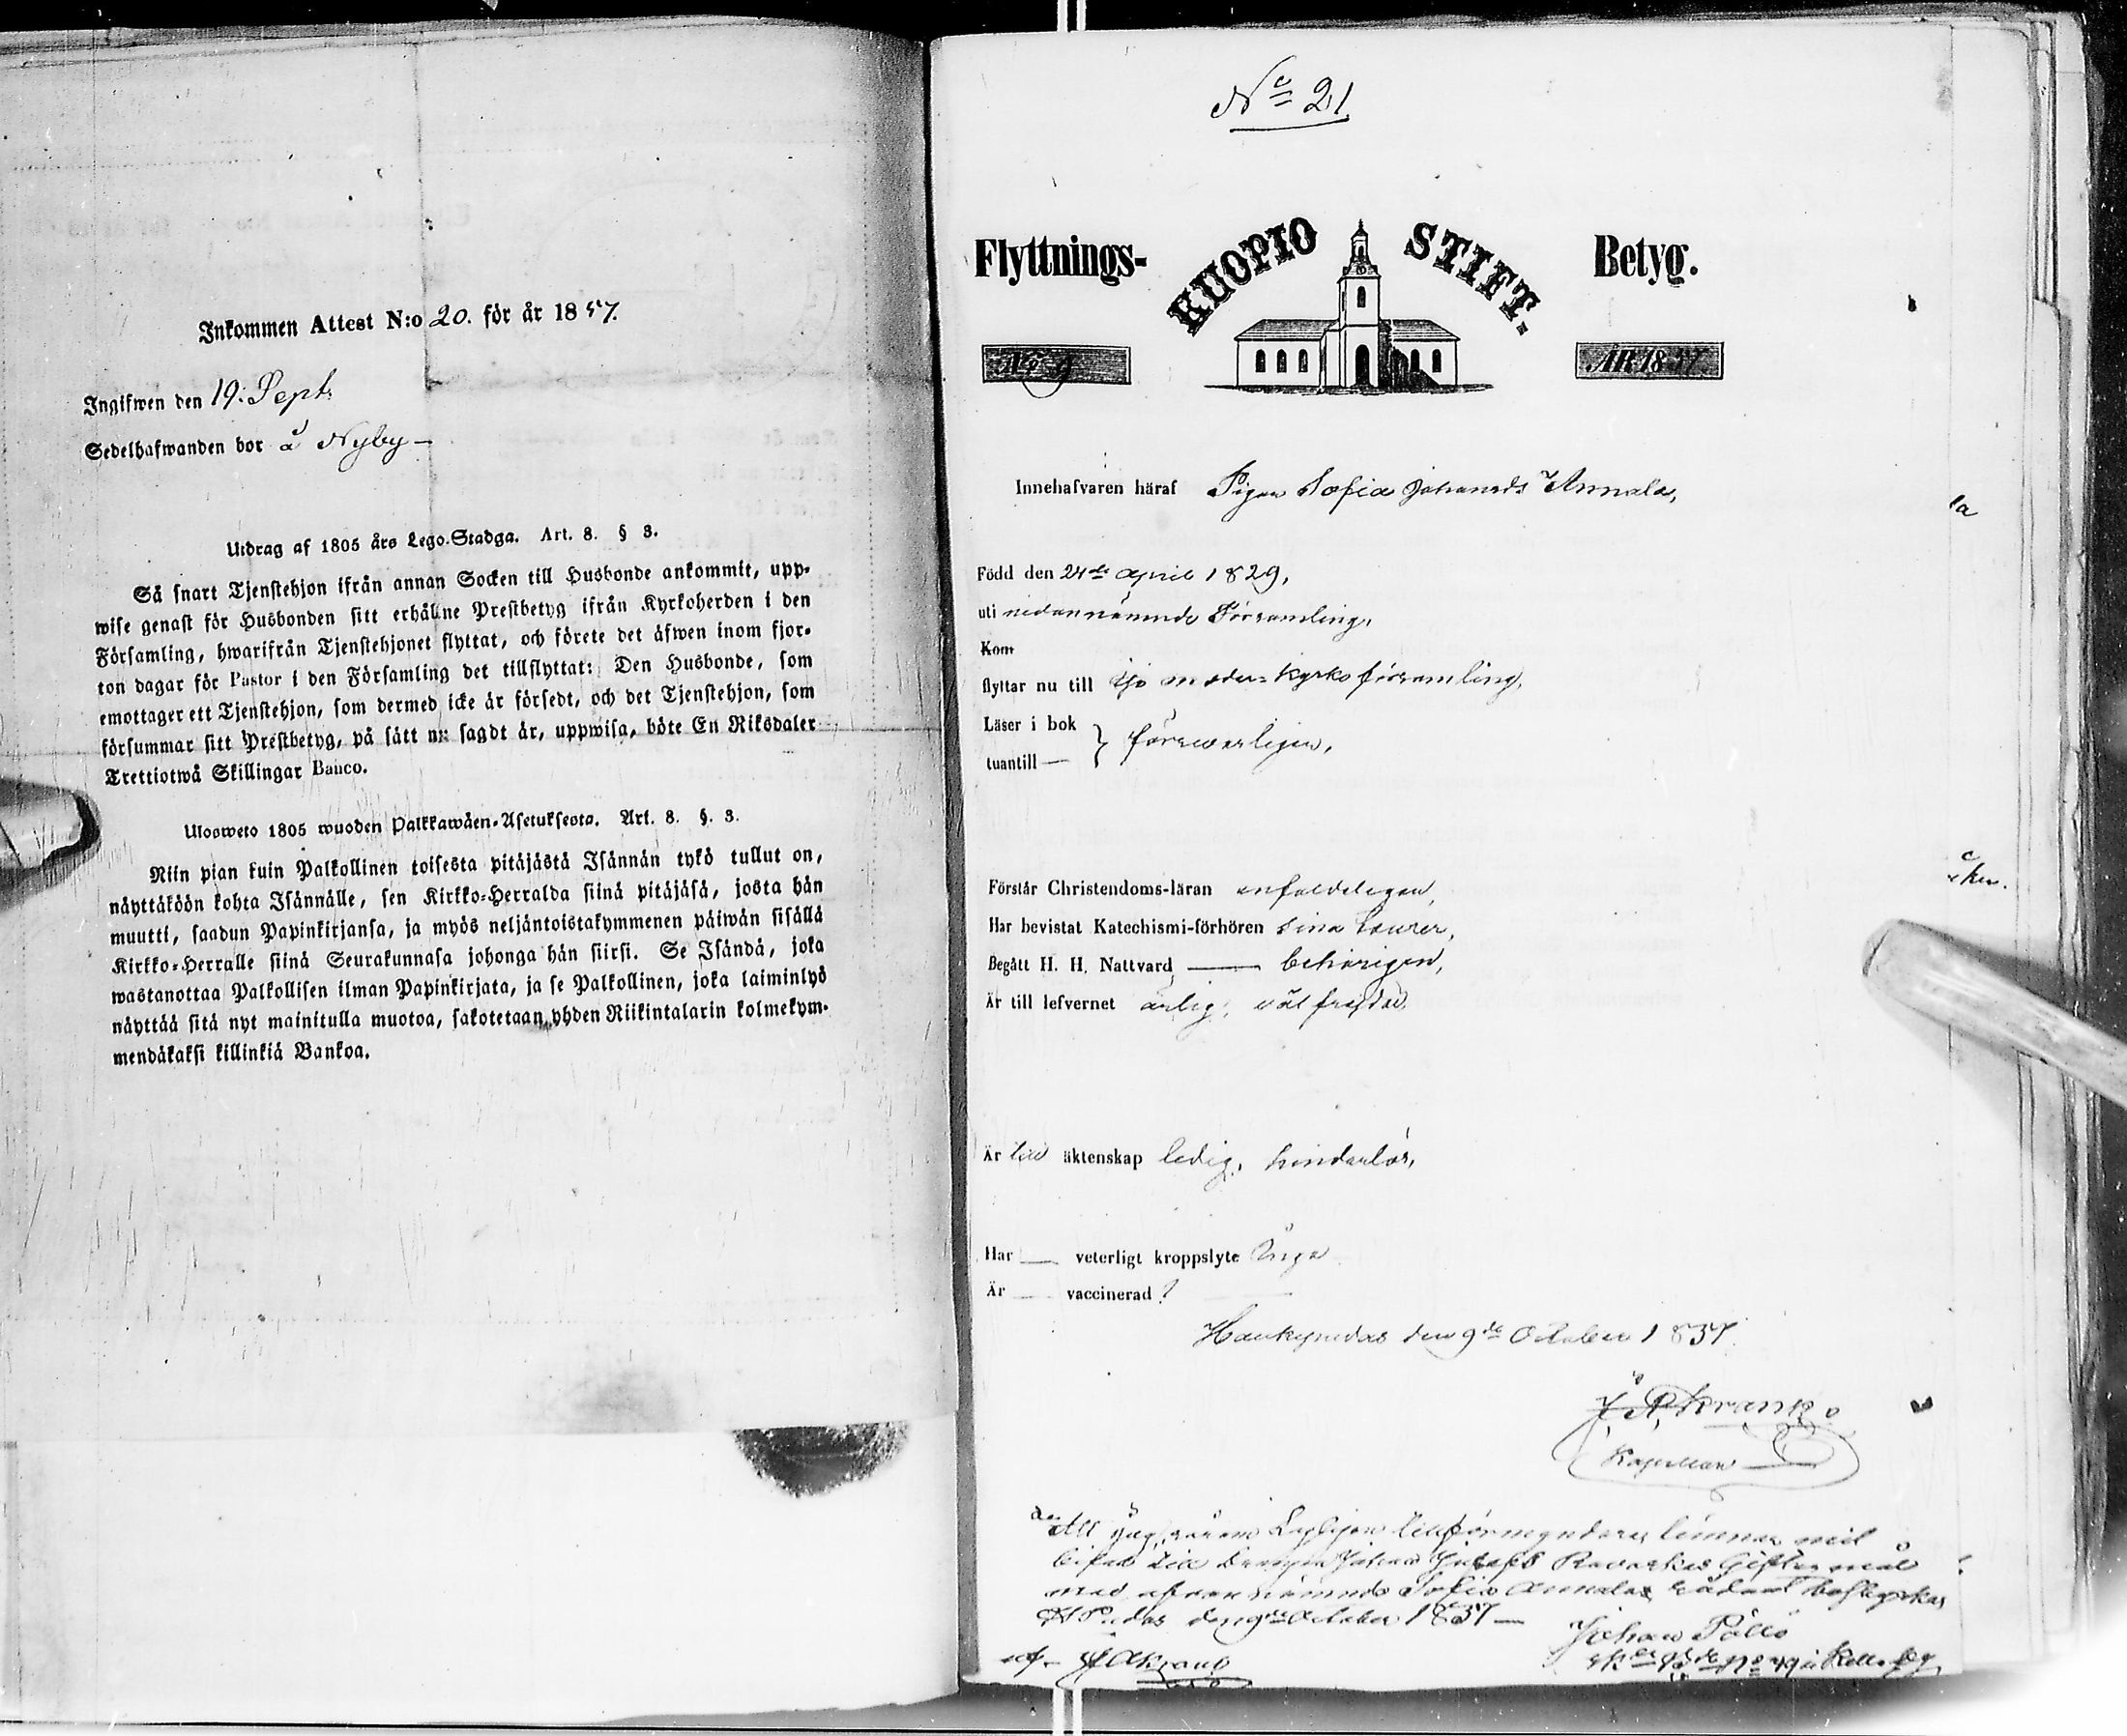 Inkommen Attest N:o 20. för år 1857.
Ingifwen den 19. Sept.
Sedelhafwanden bor å Nyby —
Utdrag af 1805 års Lego-Stadga. Art. 8. § 3.
Så snart Tjenstehjon ifrån annan Socken till Husbonde ankommit, upp-
wise genast för Husbonden sitt erhållne Prestbetyg ifrån Kyrkoherden i den
Församling, hwarifrån Tjenstehjonet flyttat, och förete det äfwen inom fjor-
ton dagar för Pastor i den Församling det tillflyttat: Den Husbonde, som
emottager ett Tjenstehjon, som dermed icke är försedt, och det Tjenstehjon, som
försummar sitt Prestbetyg, på sätt nu sagdt är, uppwisa, böte En Riksdaler
Trettiotwå Skillingar Banco.
Ulosweto 1805 wuoden Palkkawäen-Asetuksesta. Art. 8. §. 3.
Niin pian kuin Palkollinen toisesta pitäjästä Isännän tykö tullut on,
näyttäköön kohta Isännälle, sen Kirkko-Herralda siinä pitäjäsä, josta hän
muutti, saadun Papinkirjansa, ja myös neljäntoistakymmenen päiwän sisällä
Kirkko-Herralle siinä Seurakunnasa johonga hän siirsi. Se Isändä, joka
wastanottaa Palkollisen ilman Papinkirjata, ja se Palkollinen, joka laiminlyö
näyttää sitä nyt mainitulla muotoa, sakotetaan yhden Riikintalarin kolmekym-
mendäkaksi killinkiä Bankoa.
No 21
Flyttnings- KUOPIO STIFT. Betyg.
No 9 ÅR 1857.
Innehafvaren häraf Pigan Sofia Johansdr Annala,
Född den 24de April 1829,
uti nedannämnde Församling,
Kom
flyttar nu till Ijo moder-kyrko församling,
Läser i bok
tuantill — } försvarligen,
Förstår Christendoms-läran enfaldeligen,
Har bevistat Katechismi-förhören sina kurer,
Begått H. H. Nattvard — behörigen,
Är till lefvernet ärlig, välfrejdad,
Är till äktenskap ledig, hinderlös,
Har — veterligt kroppslyte Inga
Är — vaccinerad ?
Haukipudas den 9de October 1857.
Kapellan
med ofvannämnde Sofia Annala
den 9de October 1857 —
Johan